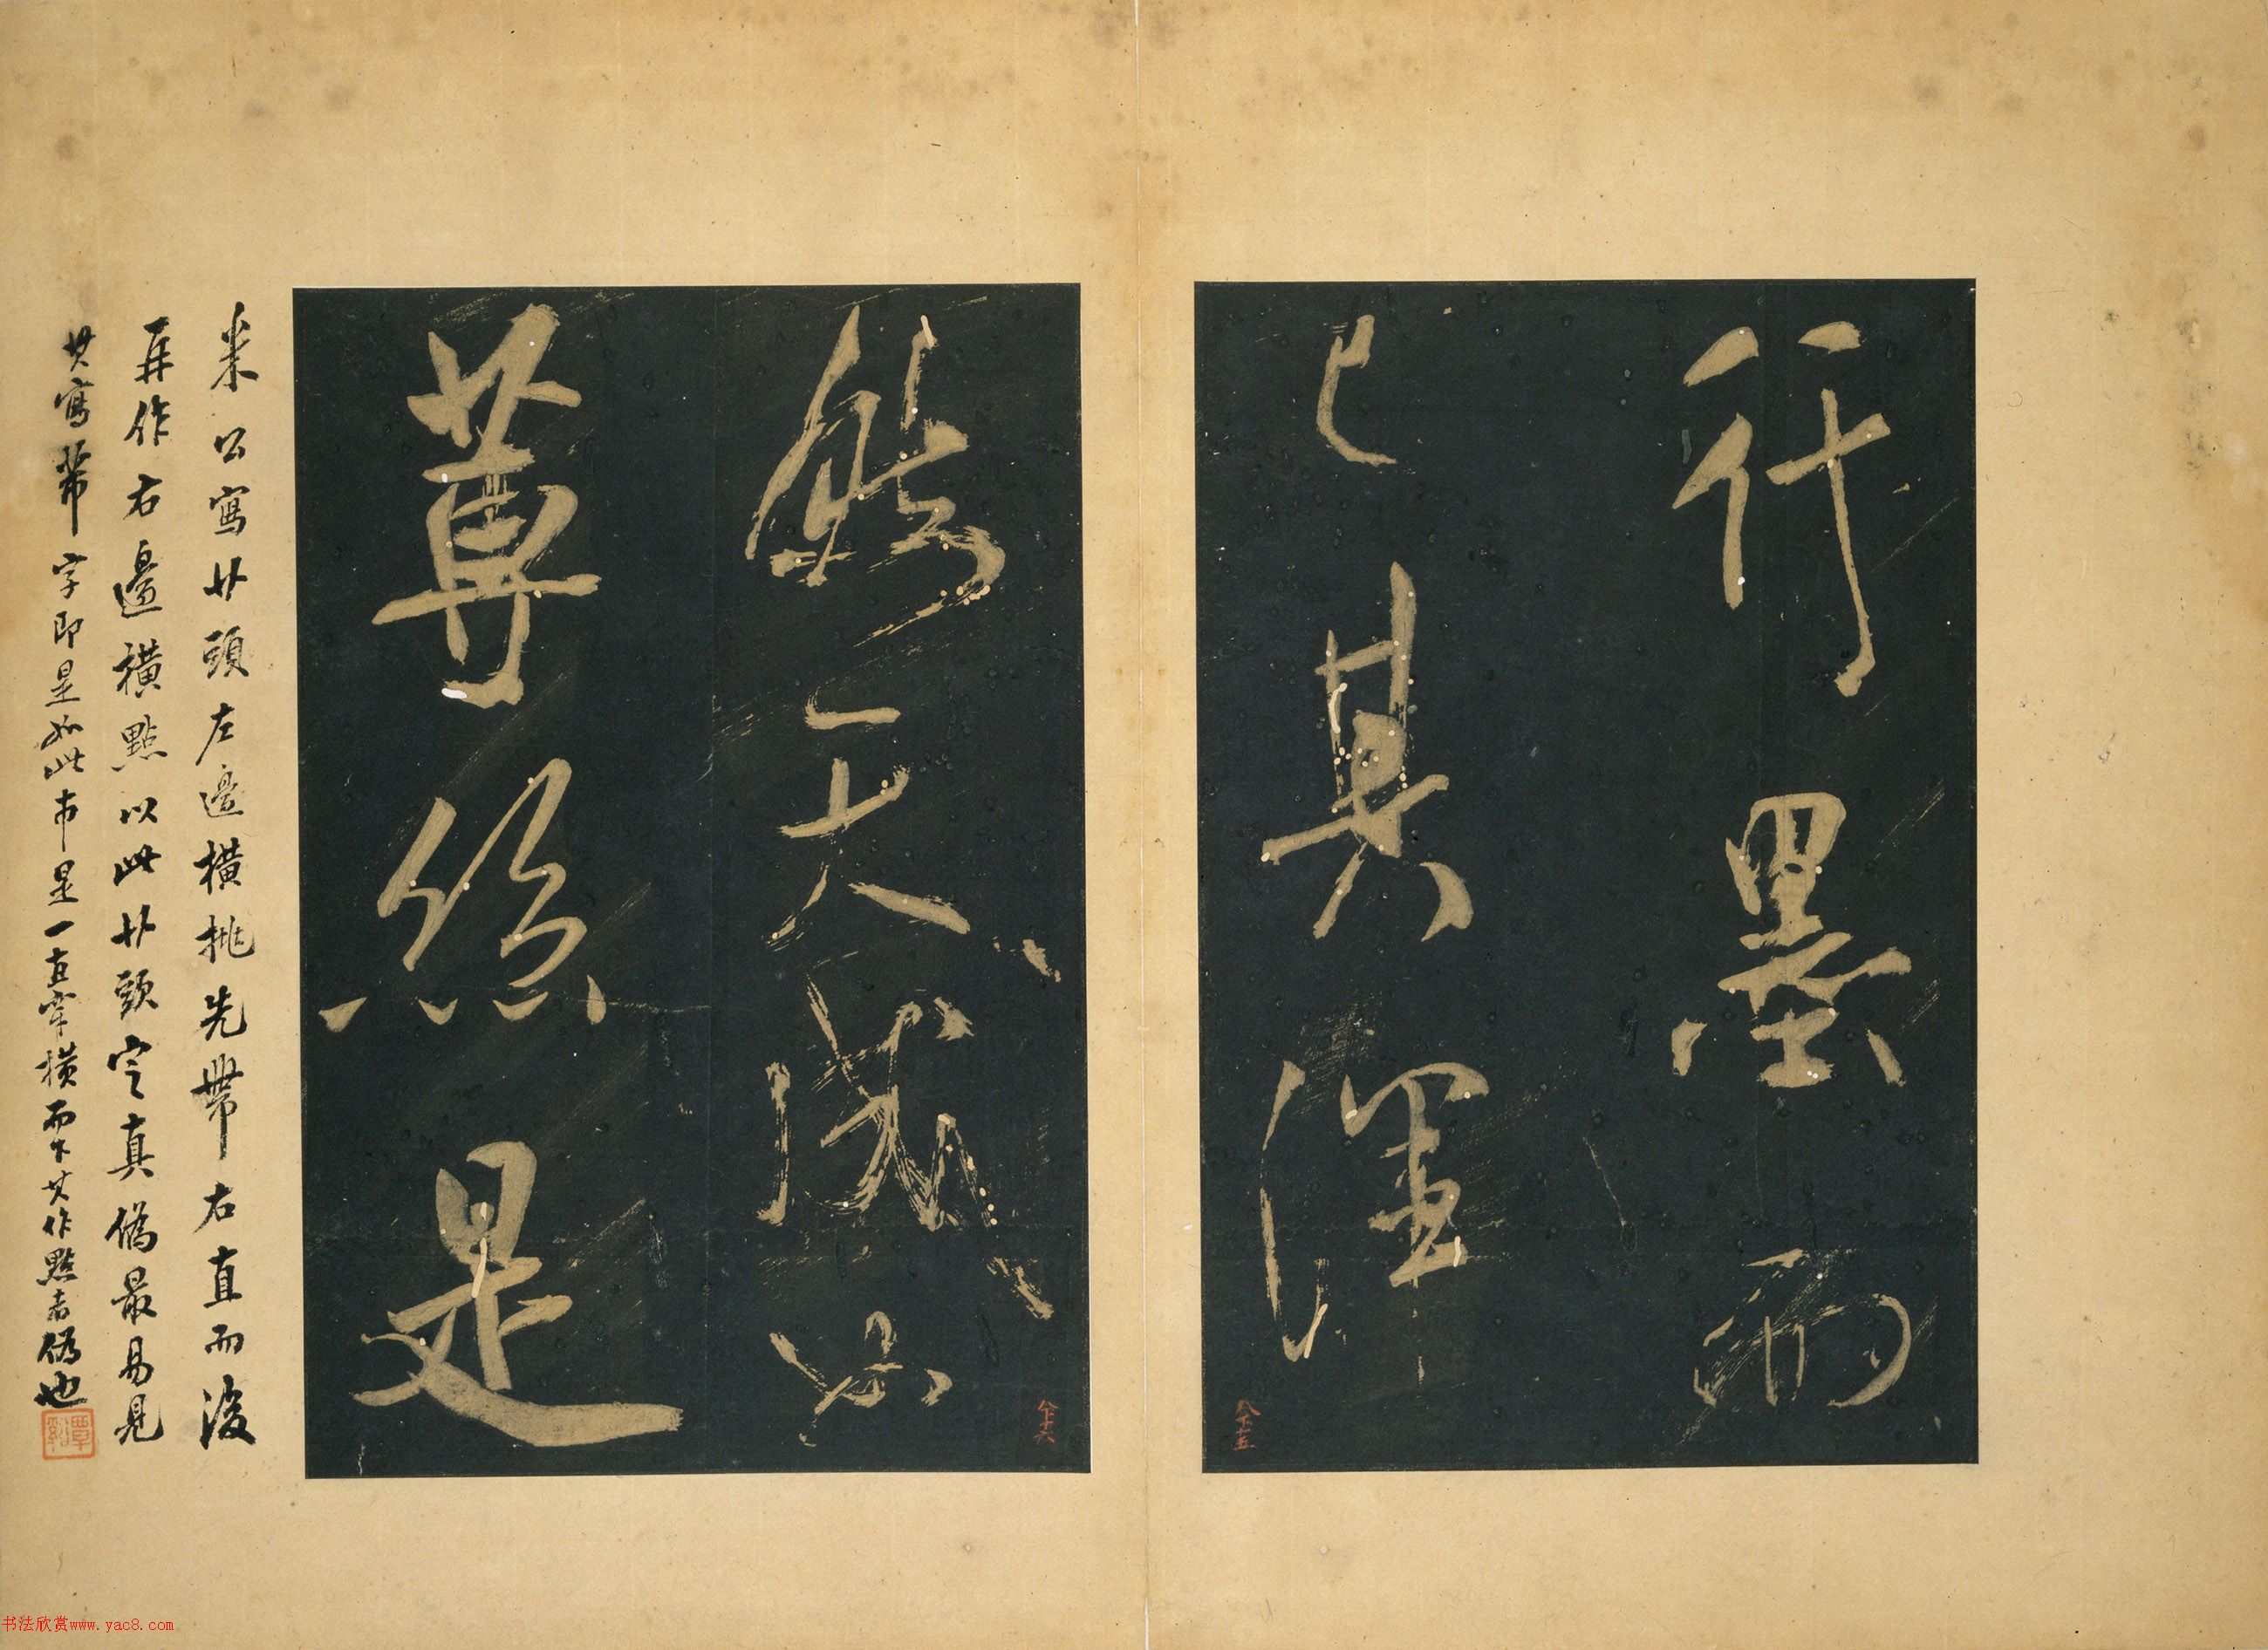 行墨而
已其渾
然天成如
蓴絲是
米公寫艹頭左邊橫挑先帶右直而後
再作右邊橫點以此艹頭定真偽最易見
其寫芾字即是如此市是一直牽橫而下其作點者偽也
覃谿
书法欣赏www.yac8.com